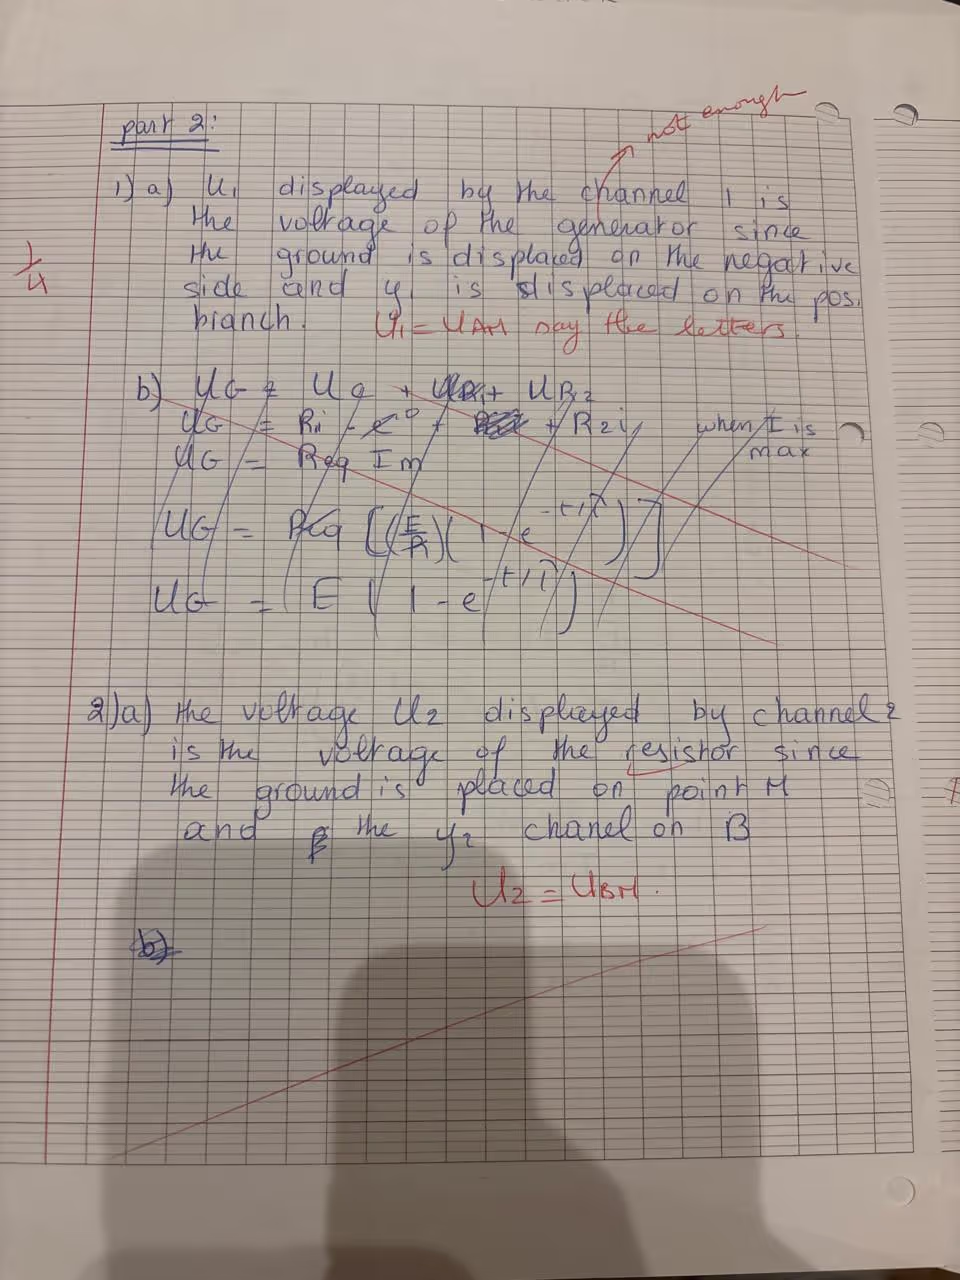 not enough
part 2:
1) a) U1 displayed by the channel 1 is
the voltage of the generator since
the ground is displaced on the negative
side and y1 is displaced on the pos.
branch.
U1 = UAM say the letters.
1/4
b) UG = U + UR2
UG = Ri - e + R2i when I is
max
UG = Req Im
UG = Req [(E/R)(1 - e^-t/τ)]
UG = E (1 - e^-t/τ)
2) a) the voltage U2 displayed by channel 2
is the voltage of the resistor since
the ground is placed on point M
and the y2 chanel on B
U2 = UBM.
b)